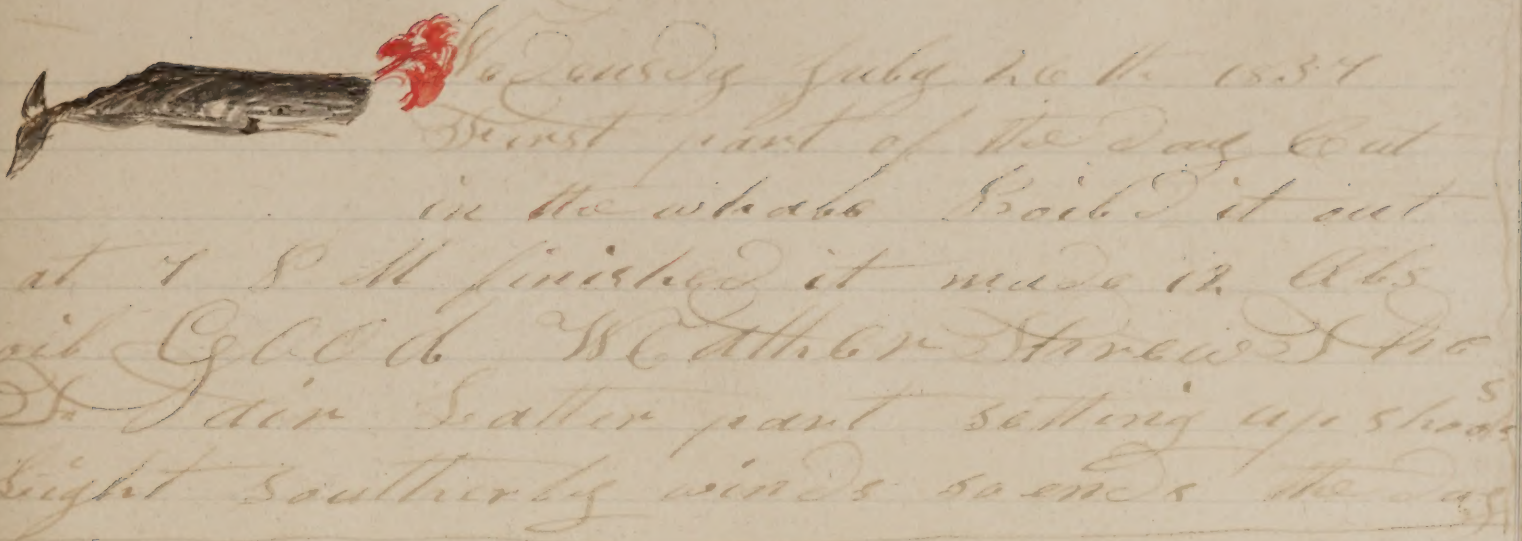 Wednesday July 26th 1837
First part of the day Cut
in the whale Boild it out
at 7 P M finished it made 12 bbls
oil Good Weather threw the
Dair Latter part setting up shooks
Light southerly winds so ends the day